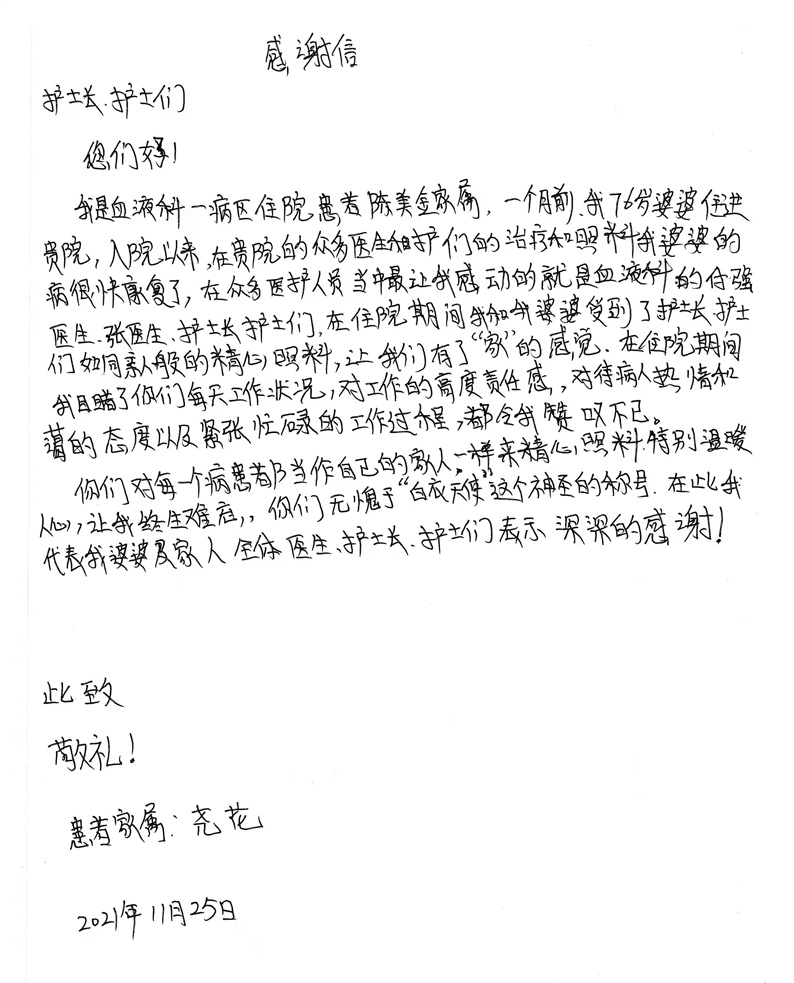 感谢信
护士长、护士们
您们好!
我是血液科一病区住院患者陈美金家属,一个月前,我76岁婆婆住进
贵院,入院以来,在贵院的众多医生和护们的治疗和照料我婆婆的
病很快康复了,在众多医护人员当中最让我感动的就是血液科的任强
医生、张医生、护士长护士们,在住院期间我和我婆婆受到了护士长护士
们如同亲人般的精心照料,让我们有了“家”的感觉。在住院期间
我目睹了你们每天工作状况,对工作的高度责任感,对待病人热情和
蔼的态度以及紧张忙碌的工作过程,都令我赞叹不已。
你们对每一个病患者都当作自己的家人一样来精心照料.特别温暖
人心,让我终生难忘,你们无愧于“白衣天使”这个神圣的称号.在此我
代表我婆婆及家人 全体医生、护士长、护士们表示深深的感谢!
此致
敬礼!
患者家属:尧花
2021年11月25日